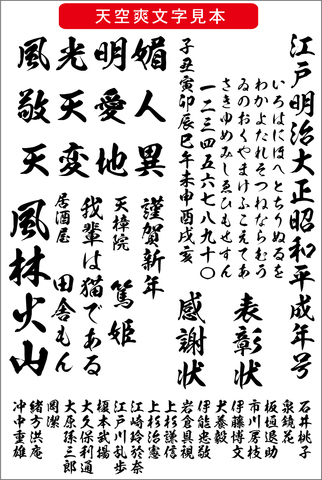 天空爽文字見本
江戸明治大正昭和平成年号
いろはにほへとちりぬるを
わかよたれそつねならむう
ゐのおくやまけふこえてあ
さきゆめみしゑひもせすん
一二三四五六七八九十〇
子丑寅卯辰巳午未申酉戌亥
媚人異
明愛地
光天変
風敬天
表彰状
感謝状
謹賀新年
天樟院
篤姫
我輩は猫である
居酒屋
田舎もん
風林火山
石井桃子
泉鏡花
板垣退助
市川房枝
伊藤博文
犬養毅
伊能忠敬
岩倉具視
上杉謙信
上杉治憲
江崎玲於奈
江戸川乱歩
榎本武揚
大久保利通
大原孫三郎
岡潔
緒方洪庵
沖中重雄